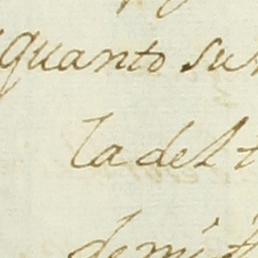 quanto su
la del t
demi